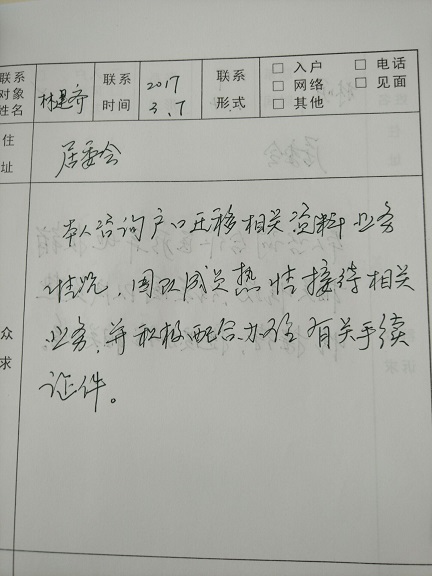 联系对象姓名 林是齐 联系时间 2017 3.7 联系形式 □ 入户 □ 电话
□ 网络 □ 见面
□ 其他
住址 居委会
本人咨询户口迁移相关资料业务
情况，团队成员热情接待相关
业务，并积极配合办理有关手续
证件。
众
求